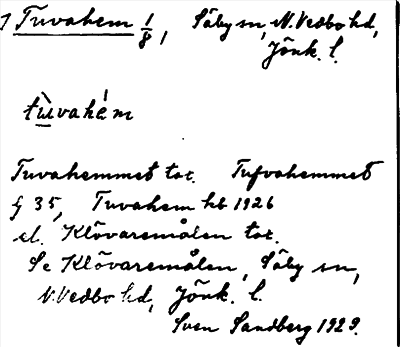 7 Tuvahem 1/8, Säby sn, N. Vedbo hd,
Jönk. l.
tùvahém
Tuvahemmet tot. Tufvahemmet
§ 35, Tuvahem kb 1926
el. Klövaremålen tot.
Se Klövaremålen, Säby sn,
N. Vedbo hd, Jönk. l.
Sven Sandberg 1929.